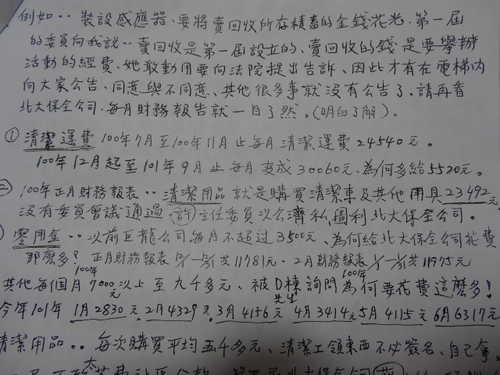 例如：裝設感應器、要將賣回收所存積蓄的金錢花光、第一屆
的委員向我說：賣回收是第一屆設立的、賣回收的錢是要舉辦
活動的經費、她敢動用要向法院提出告訴、因此才有在電梯內
向大家公告、同意與不同意、其他很多事就沒有公告了、請再看
北大保全公司、每月財務報告就一目了然。(明白了解)。
① 清潔運費100年7月至100年11月止每月清潔運費24540元。
100年12月起至101年9月止每月變成30060元、為何多給5520元。
100年正月財務報表：清潔用品就是購買清潔車及其他用具23492元
沒有委員會議通過、許主任委員以公濟私圖利北大保全公司。
零用金：以前巨龍公司每月不超過3500元、為何給北大保全公司花費
那麼多？正月財務報表 100年 共11781元、2月財務報表 100年 共11975元
其他每個月7000元以上至九千多元、被D棟先生詢問為何要花費這麼多！
今年101年1月2830元2月4329元3月4156元4月3414元5月4115元6月6317元
清潔用品：每次購買平均五千多元、清潔工領東西不必簽名、自己拿